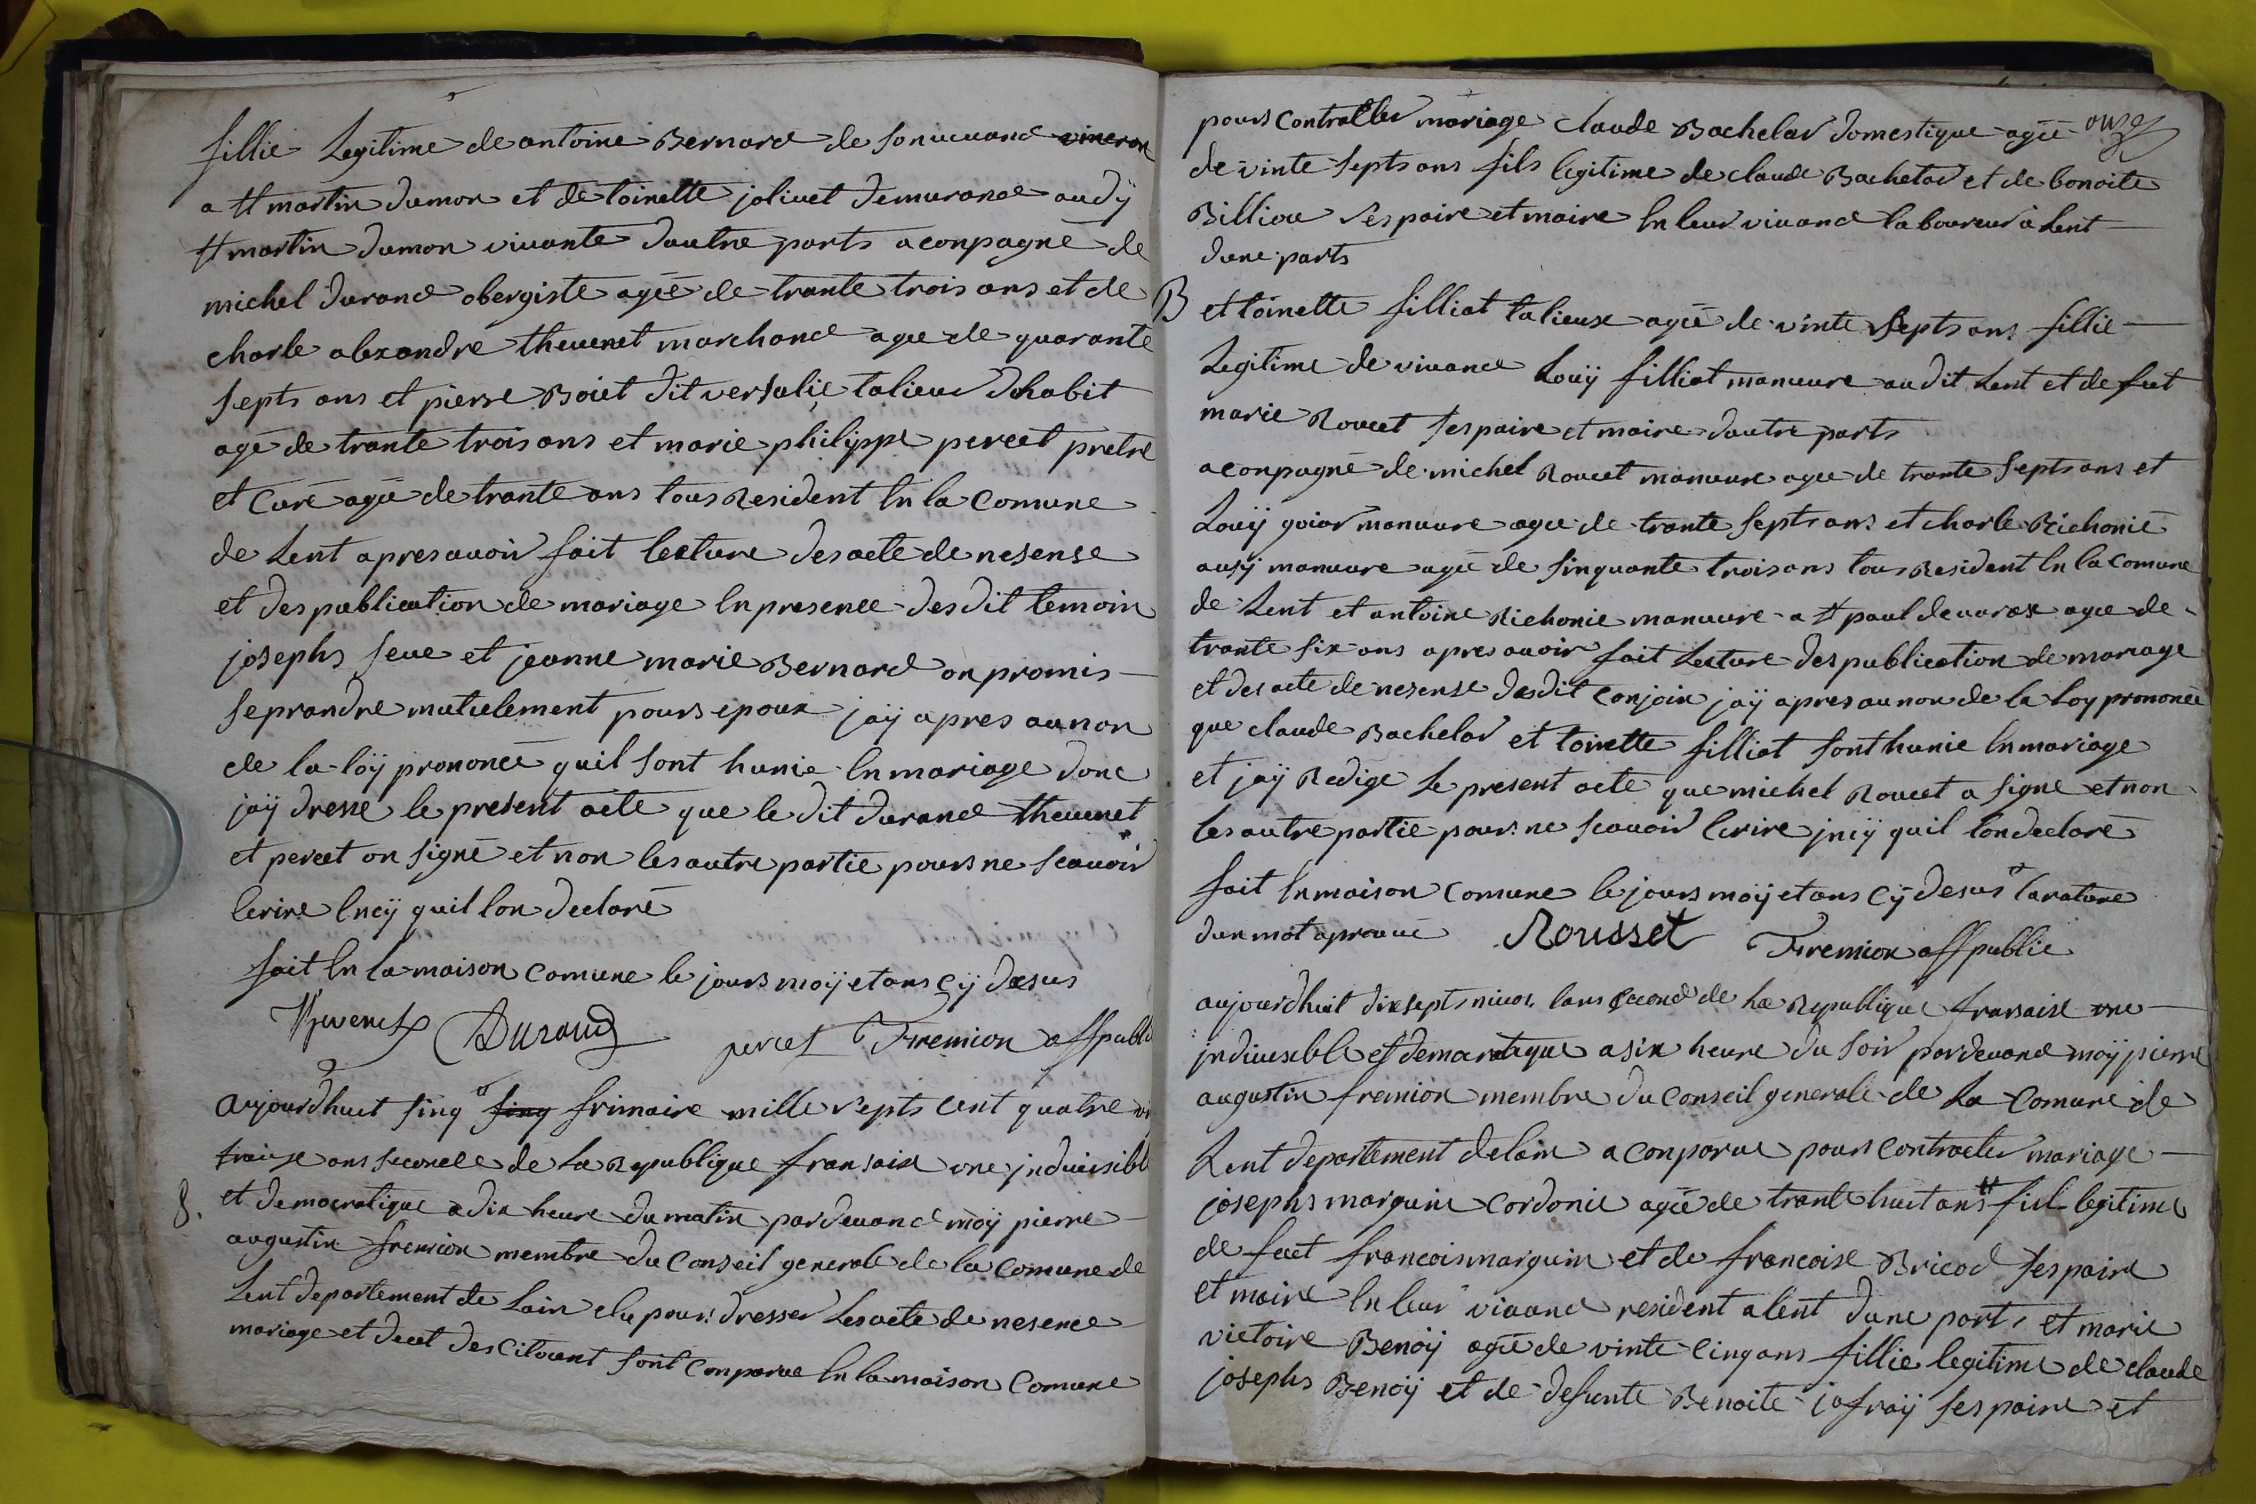 fillie Legitime de antoine Bernard de son vivand vineron
a st martin dumon et de toinette jolivet demurand audÿ
st martin dumon vivante dautre parts aconpagne de
michel durand obergiste agéé de trante trois ans et de
charle alexandre thevenet marchand agee de quarante
septs ans et pierre Boiet dit versalie talieur dhabit
age de trante trois ans et marie philippe percet pretre
et Curé agée de trante ans tous Resident En la Comune
de Lent apres avoir fait lecture des acte de nesense
et des publication de mariage En presence des dit temoin
josephs seve et jeanne marie Bernard on promis
se prandre mutulement pours epoux jaÿ apres au non
de la loÿ prononcé quil sont hunie En mariage donc
jaÿ dresse le present acte que le dit durand thevenet
et percet on signé et non les autre partie pours ne scavoir
Ecrire Encÿ quil lon declaré
fait En la maison Comune le jours moÿ et ans Cÿ desus
Thevenet Durand percet Fremion off public
Aujourdhuit sinq sinq frimaire mille septs cent quatre vi
traize ans seconde de La Republique fransaise une indivisible
8. et democratique a dix heure du matin pardevand moÿ pierre
augustin fremion membre du Conseil generale de la Comune de
Lent departement de Lain elu pours dresser Les acte de nesence
mariage et decet des Citoient sont Comparue En la maison Comune
onze
pours Contracter mariage claude Bachelar domestique agéé
de vinte septs ans fils legitime de claude Bachelar et de bonoite
Billiou ses paire et maire En leur vivand laboureur a Lent
dune parts
B et toinette filliat talieuse agéé de vinte septs ans fillie
Legitime de vivance Louÿ filliat manuvre au dit Lent et de fut
marie Roucet ses paire et maire dautre parts
aconpagné de michel Roucet manuvre agee de trante septs ans et
Louÿ goiar manuvre agee de trante septs ans et charle Richonié
ausÿ manuvre agéé de sinquante trois ans tous Resident En la Comune
de Lent et antoine Richonie manuvre a st paul de varax agee de
trante six ans apres avoir fait Lecture des publication de mariage
et des acte de nesense desdit conjoin jaÿ apres au non de la Loy prononcé
que claude Bachelar et toinette filliat sont hunie En mariage
et jaÿ Redigé Le present acte que michel Roucet a signe et non
les autre partie pours ne scavoir Ecrire jncÿ quil lon declaré
fait En maison Comune le jours moÿ et ans Cÿ desus la rature
dun mot aprouvé Rousset Fremion off public
aujourdhuit dix septs nivos lans second de La Republique fransaise une
jndivisible et demacratique a six heure du soir pardevand moÿ pierre
augustin fremion membre du Conseil generale de La Comune de
Lent departement de lain a conparue pours Contracter mariage
josephs marguin Cordonie agéé de trante huit ans fiel legitime
de feet francois marguin et de francoise Bricod ses paire
et maire En leur vivand resident a lent dune parts et marie
victoire Benoÿ agéé de vinte cinq ans fillie legitime de claude
josephs Benoÿ et de defunte Benoite jofraÿ ses paire et